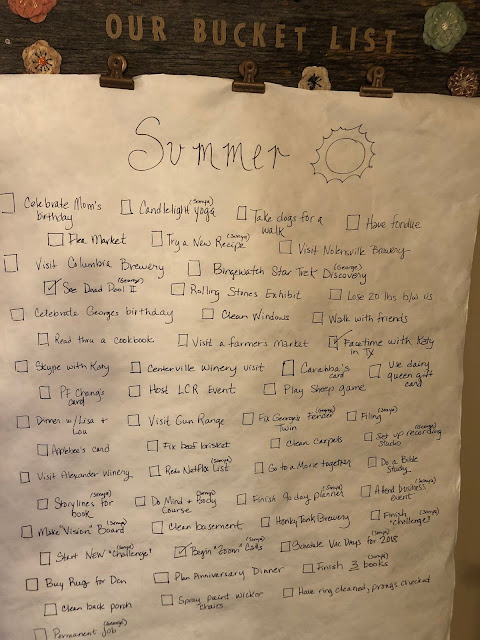 OUR BUCKET LIST
Summer
Celebrate Mom's birthday
Candlelight yoga (Sonya)
Take dogs for a walk
Have fondue
Flea Market
Try a New Recipe (Sonya)
Visit Nolensville Brewery
Visit Columbia Brewery
Bingewatch Star Trek Discovery (George)
See Dead Pool II (George)
Rolling Stones Exhibit
Lose 20 lbs b/w us
Celebrate Georges birthday
Clean Windows
Walk with friends
Read thru a cookbook
Visit a farmers market
Facetime with Katy in TX
Skype with Katy
Centerville Winery visit
Carabba's card
Use dairy queen gift card
PF Chang's card
Host LCR Event
Play Sheep game
Dinner w/Lisa + Lou
Visit Gun Range
Fix George's Fender Twin (George)
Filing (Sonya)
Applebee's card
Fix beef brisket
Clean carpets
Set up recording studio (George)
Visit Alexander Winery
Redo Netflix List (Sonya)
Go to a Movie together
Do a Bible Study
Storylines for book (Sonya)
Do Mind + Body Course (Sonya)
Finish 90 day planner (Sonya)
Attend business event (Sonya)
Make "Vision" Board (Sonya)
Clean basement
HonkyTonk Brewery
Finish "challenge" (Sonya)
Start NEW "challenge" (Sonya)
Begin "Zoom" Calls (Sonya)
Schedule Vac Days for 2018 (Sonya)
Buy Rug for Den
Plan Anniversary Dinner
Finish 3 books
Clean back porch
Spray paint wicker chairs
Have ring cleaned, prongs checked
Permanent Job (Sonya)